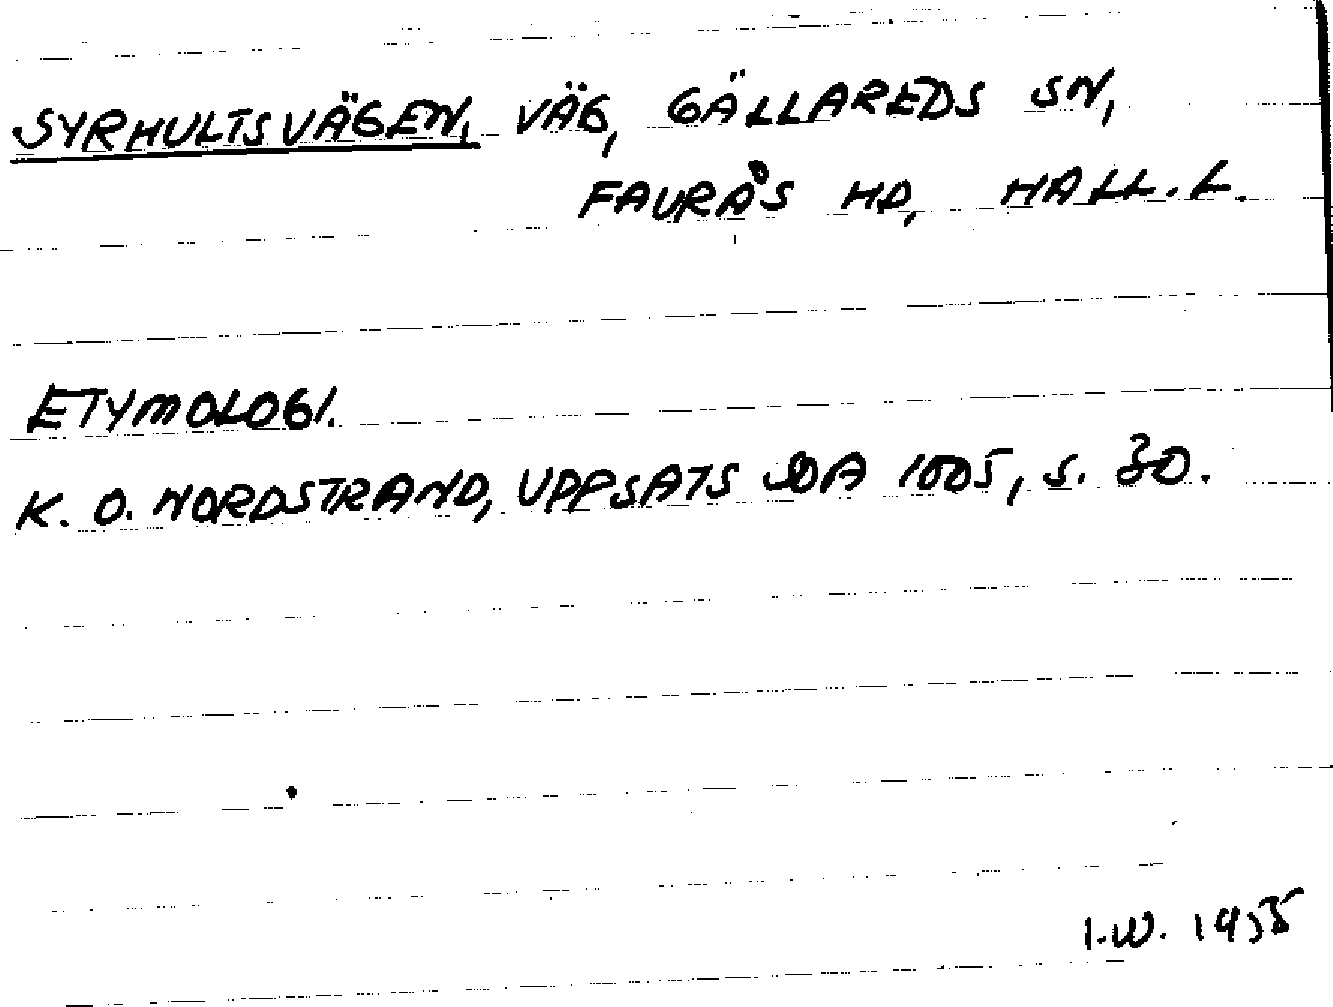 SYRHULTSVÄGEN, VÄG, GÄLLAREDS SN,
FAURÅS HD, HALL. L.
ETYMOLOGI.
K. O. NORDSTRAND, UPPSATS DA 1005, S. 30.
I.W. 1955